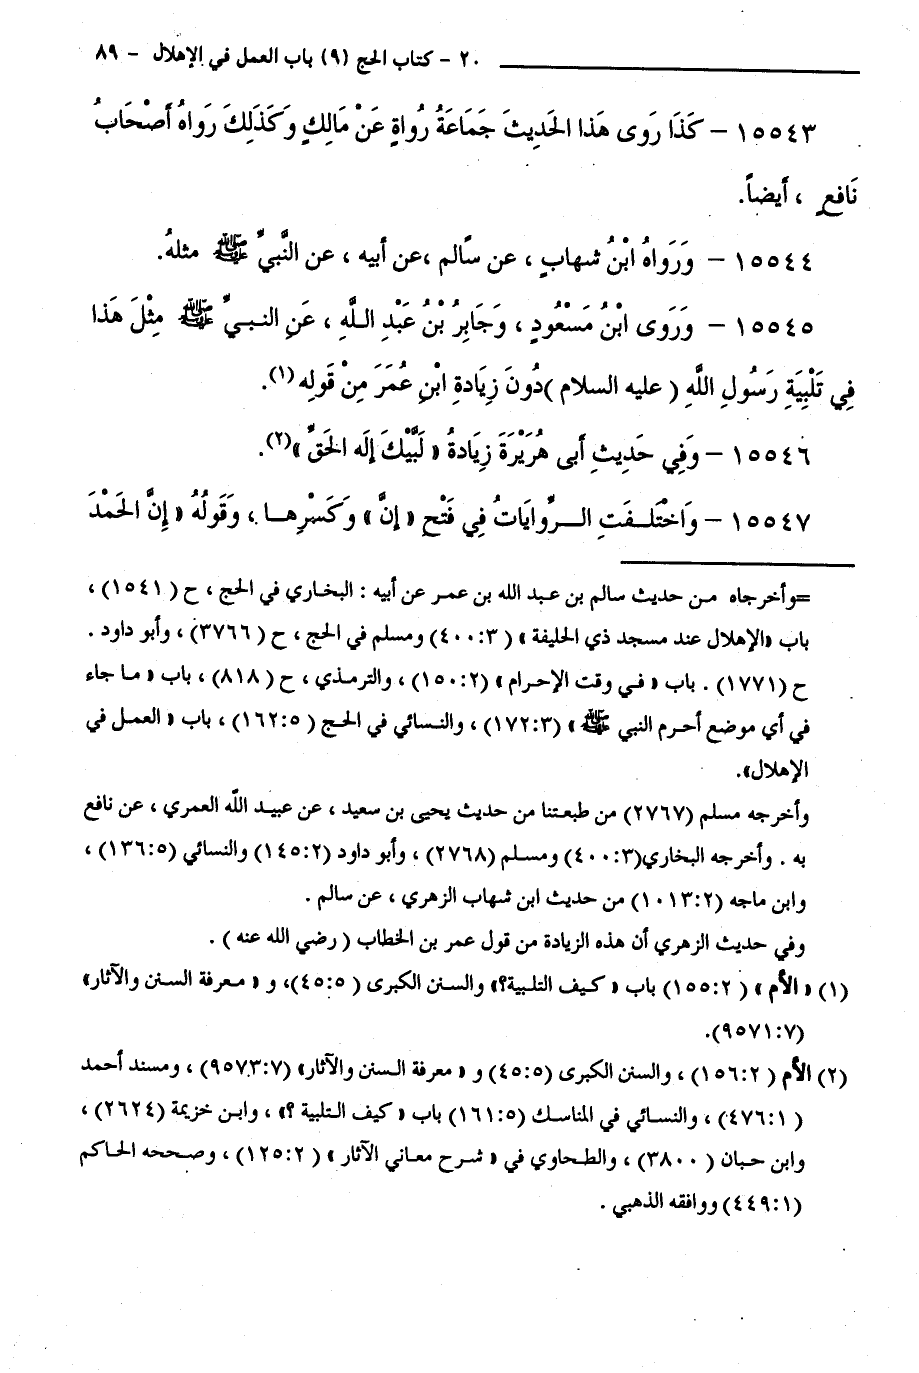 ٢٠ - كتاب الحج (٩) باب العمل في الإهلال - ٨٩
١٥٥٤٣ - كَذَا رَوَى هَذا الحَدِيثَ جَمَاعَةُ رُواةٍ عَنْ مَالِكٍ وَكَذَلِكَ رَواهُ أَصْحَابُ
نَافِعٍ ، أيضاً.
١٥٥٤٤ - وَرَواهُ ابْنُ شهابٍ ، عن سَالم ،عن أبيه ، عن النَّبيِّ ﷺ مثلهُ.
١٥٥٤٥ - وَرَوى ابْنُ مَسْعُودٍ ، وَجَابِرُ بْنُ عَبْدِ اللَّهِ ، عَنِ النبيِّ ﷺ مِثْلَ هَذا
فِي تَلْبِيَةِ رَسُولِ اللَّهِ ( عليه السلام )دُونَ زِيَادةِ ابْنِ عُمَرَ مِنْ قَولِه (١).
١٥٥٤٦ - وَفِي حَدِيثِ أَبى هُرَيْرَةَ زِيَادةُ « لَبَّيْكَ إلَه الحَقِّ »(٢).
١٥٥٤٧ - وَاخْتَلَفَتِ الرِّوايَاتُ فِي فَتْحِ « إنّ » وكَسْرِها ، وَقَولُهُ « إِنَّ الحَمْدَ
=وأخرجاه من حديث سالم بن عبد الله بن عمر عن أبيه : البخاري في الحج ، ح ( ١٥٤١) ،
باب «الإهلال عند مسجد ذي الحليفة » ( ٣: ٤٠٠) ومسلم في الحج ، ح ( ٣٧٦٦) ، وأبو داود .
ح (١٧٧١) . باب « في وقت الإحرام » (٢: ١٥٠) ، والترمذي ، ح ( ٨١٨) ، باب « ما جاء
في أي موضع أحرم النبي ﷺ » (٣: ١٧٢) ، والنسائي في الحج ( ٥: ١٦٢) ، باب « العمل في
الإهلال».
وأخرجه مسلم (٢٧٦٧) من طبعتنا من حديث يحيى بن سعيد ، عن عبيد الله العمري ، عن نافع
به . وأخرجه البخاري(٣: ٤٠٠) ومسلم (٢٧٦٨) ، وأبو داود (٢: ١٤٥) والنسائي (٥: ١٣٦) ،
وابن ماجه (٢: ١٠١٣) من حديث ابن شهاب الزهري ، عن سالم .
وفي حديث الزهري أن هذه الزيادة من قول عمر بن الخطاب ( رضي الله عنه ) .
(١) « الأم » ( ٢: ١٥٥) باب « كيف التلبية؟» والسنن الكبرى ( ٥: ٤٥)، و « معرفة السنن والآثار»
(٧: ٩٥٧١).
(٢) الأم ( ٢: ١٥٦) ، والسنن الكبرى (٥: ٤٥) و « معرفة السنن والآثار» (٧: ٩٥٧٣) ، ومسند أحمد
( ١: ٤٧٦) ، والنسائي في المناسك (٥: ١٦١) باب « كيف التلبية ؟» ، وابن خزيمة (٢٦٢٤) ،
وابن حبان ( ٣٨٠٠) ، والطحاوي في « شرح معاني الآثار » ( ٢: ١٢٥) ، وصححه الحاكم
(١: ٤٤٩) ووافقه الذهبي .